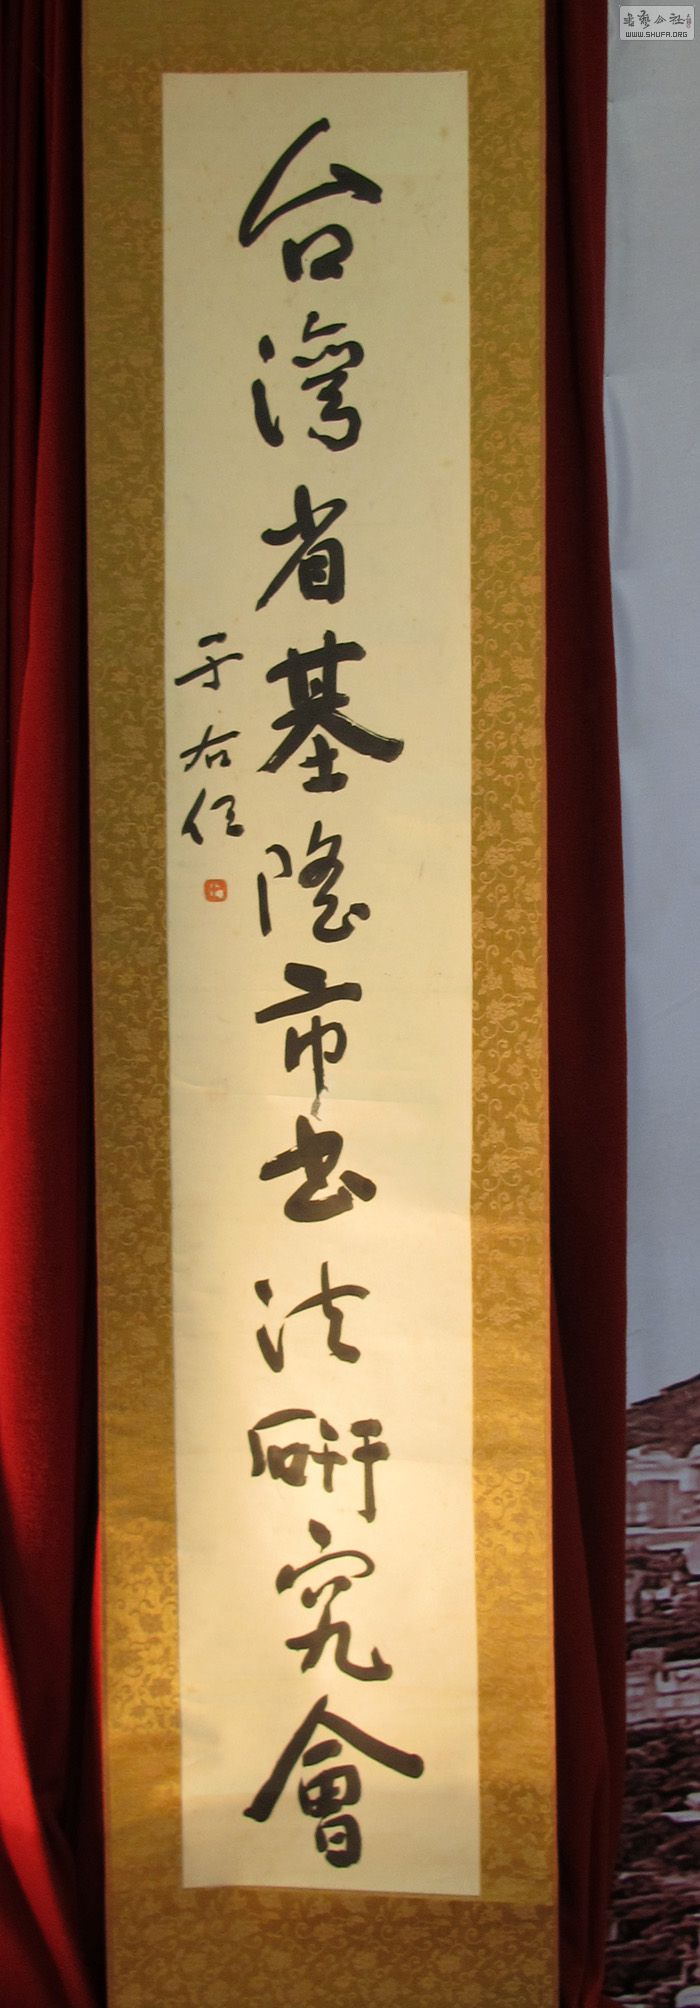 台灣省基隆市书法研究會
于右任
書藝公社
WWW.SHUFA.ORG